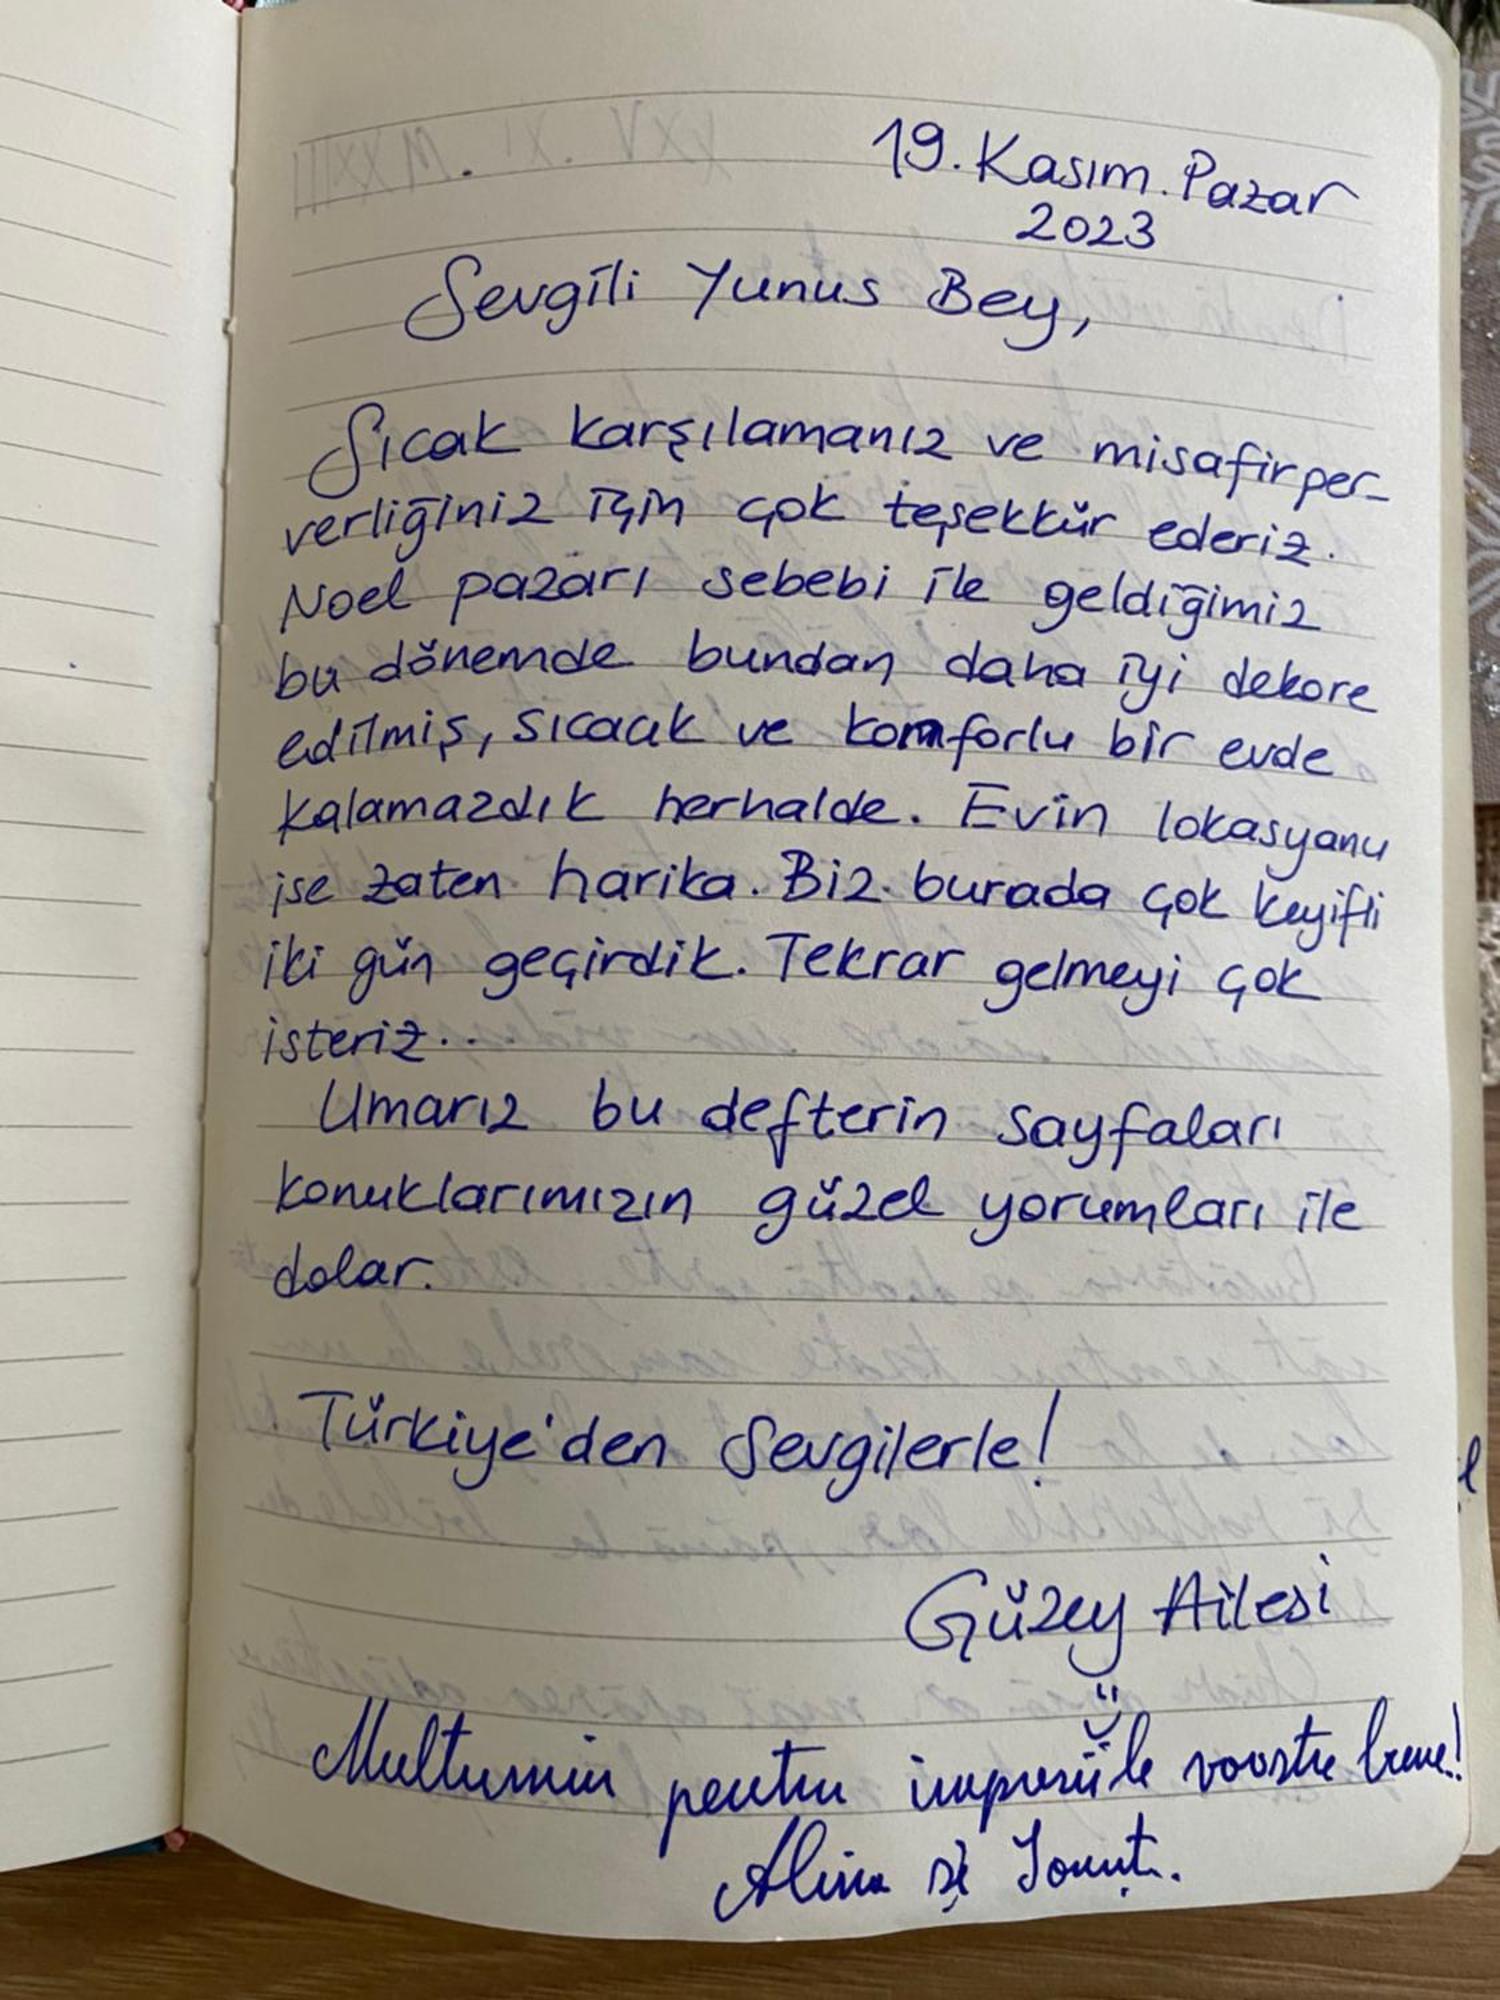 19. Kasım. Pazar
2023
Sevgili Yunus Bey,
Sıcak karşılamanız ve misafirper-
verliğiniz için çok teşekkür ederiz.
Noel pazarı sebebi ile geldiğimiz
bu dönemde bundan daha iyi dekore
edilmiş, sıcacık ve komforlu bir evde
kalamazdık herhalde. Evin lokasyonu
ise zaten harika. Biz burada çok keyifli
iki gün geçirdik. Tekrar gelmeyi çok
isteriz...
Umarız bu defterin sayfaları
konuklarımızın güzel yorumları ile
dolar.
Türkiye'den Sevgilerle!
Güzey Ailesi
Multumim pentru impresiile voastre bune!
Alina și Ionuț.